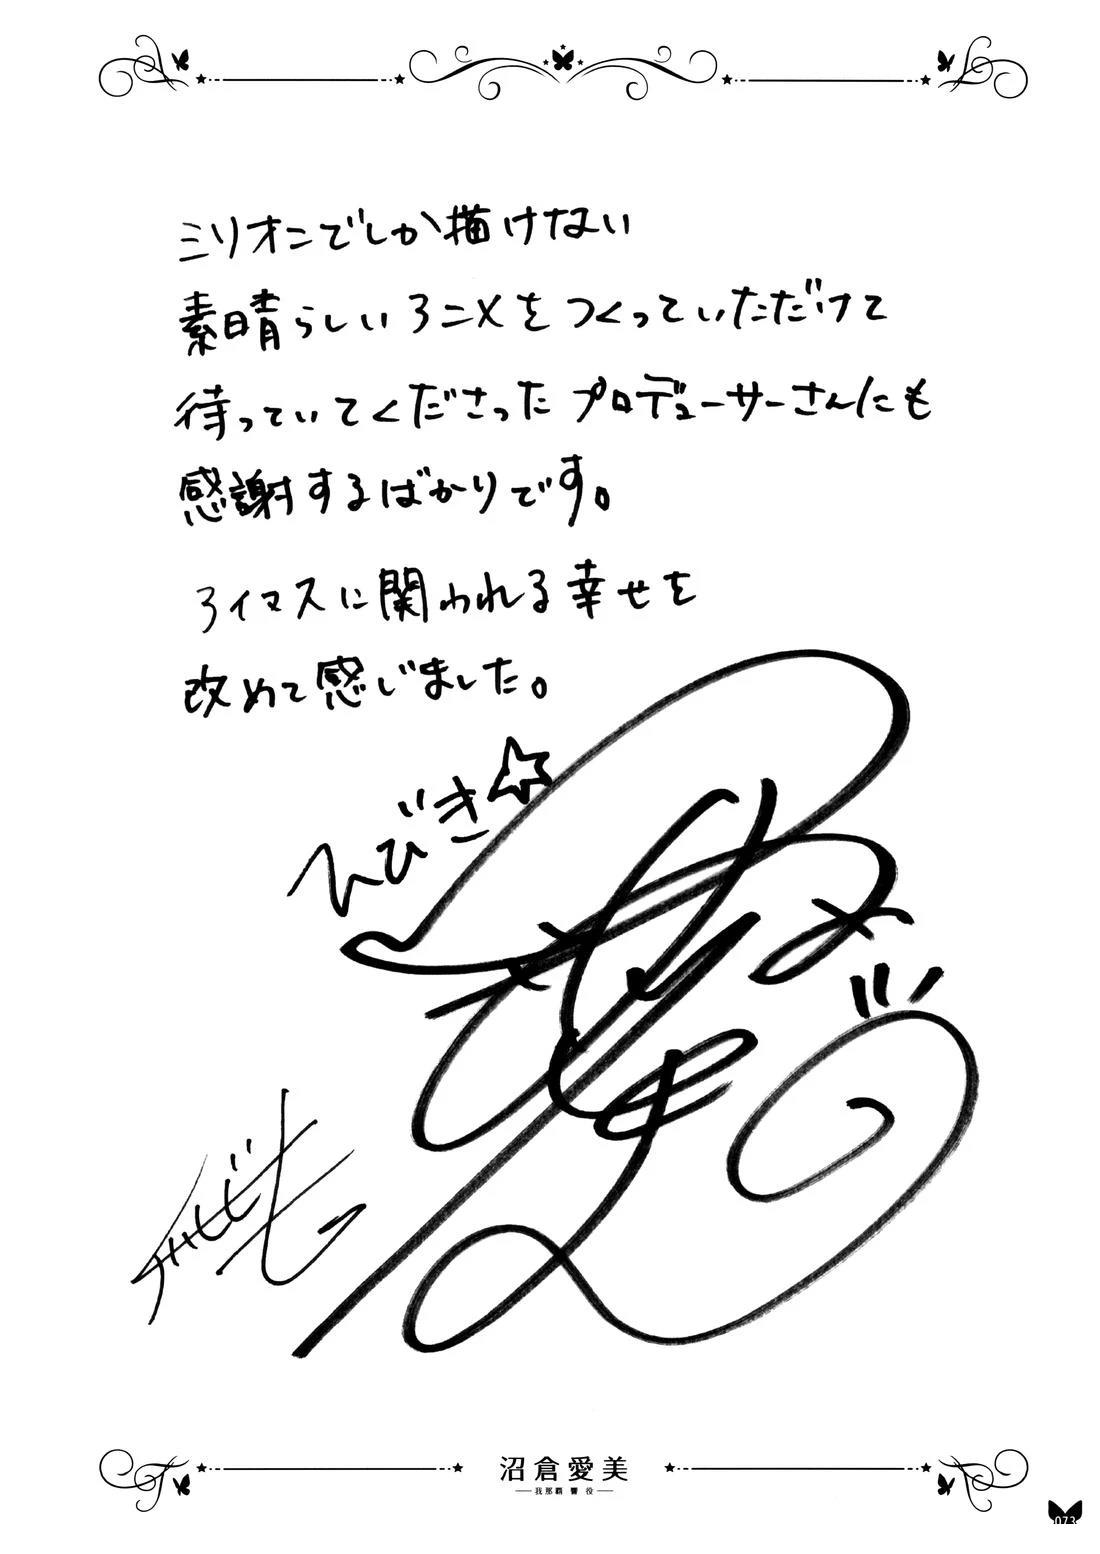 ミリオンでしか描けない
素晴らしいアニメをつくっていただけて
待っていてくださったプロデューサーさんにも
感謝するばかりです。
アイマスに関われる幸せを
改めて感じました。
ひびき☆
沼倉愛美
我那覇 響 役
073